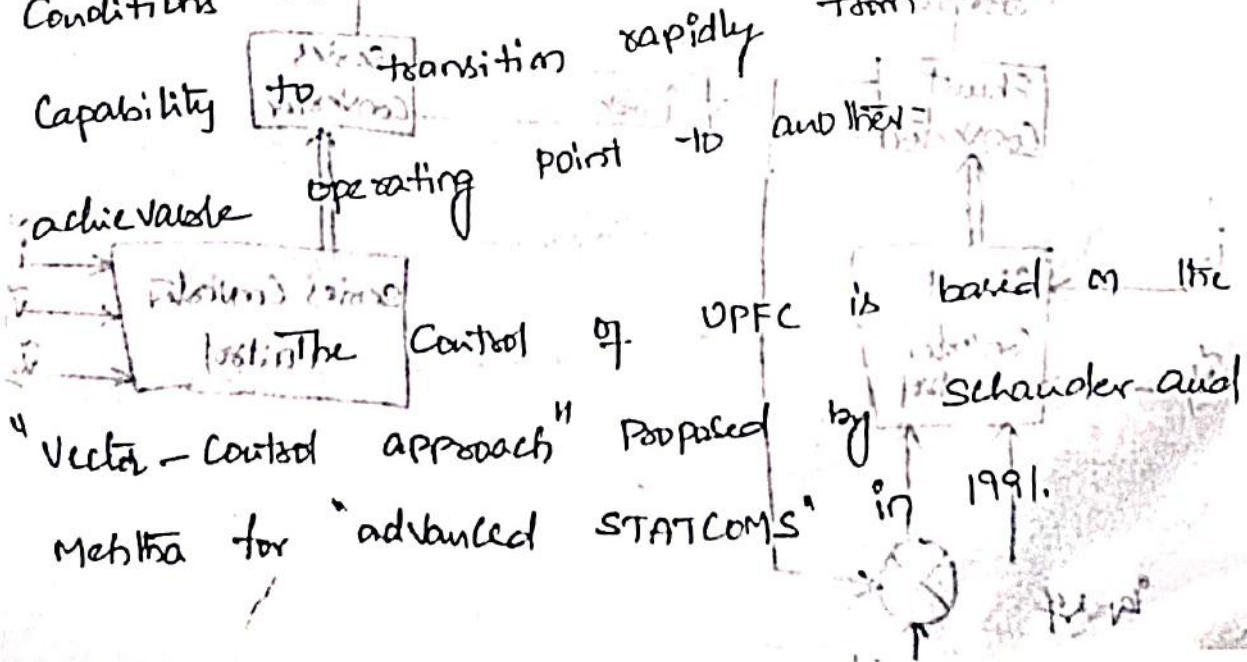 Conditions
Capability to transition rapidly from
achievable operating point to another
The Control of UPFC is based on the
"Vector-Control approach" Proposed by Schauder and
Mehtha for "advanced STATCOMS" in 1991.